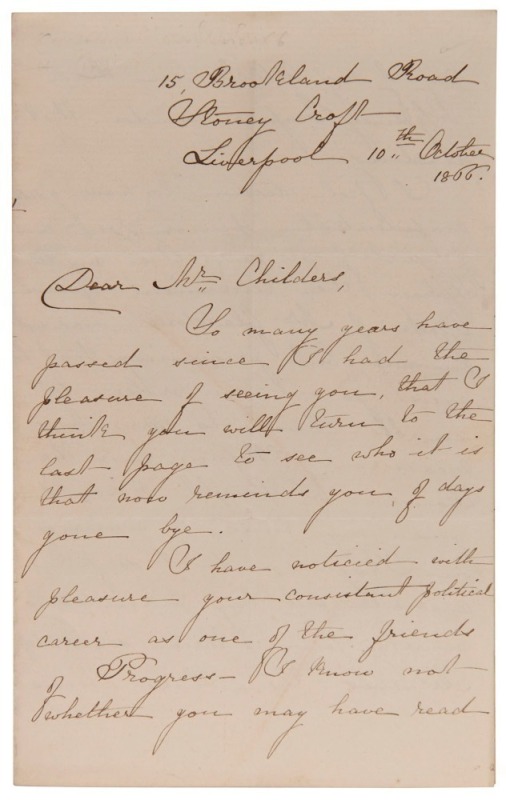 15, Brookland Road
Stoney Croft
Liverpool 10th October
1866.
Dear Mr. Childers,
So many years have
passed since I had the
pleasure of seeing you, that I
think you will turn to the
last page to see who it is
that now reminds you of days
gone bye.
I have noticied with
pleasure your consistent political
career as one of the friends
of Progress - I know not
whether you may have read